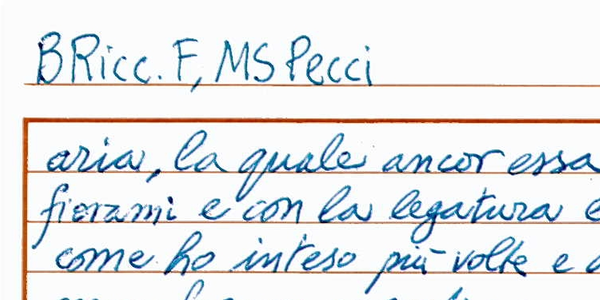 BRicc. F, MS Pecci
aria, la quale ancor essa
fiorami e con la legatura e
come ho inteso più volte e